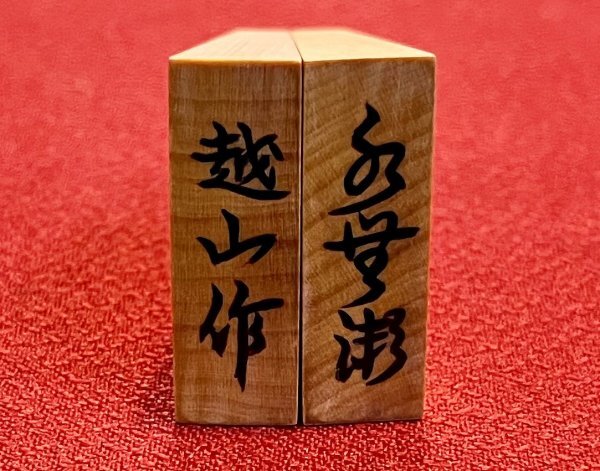 水無瀬
越山作